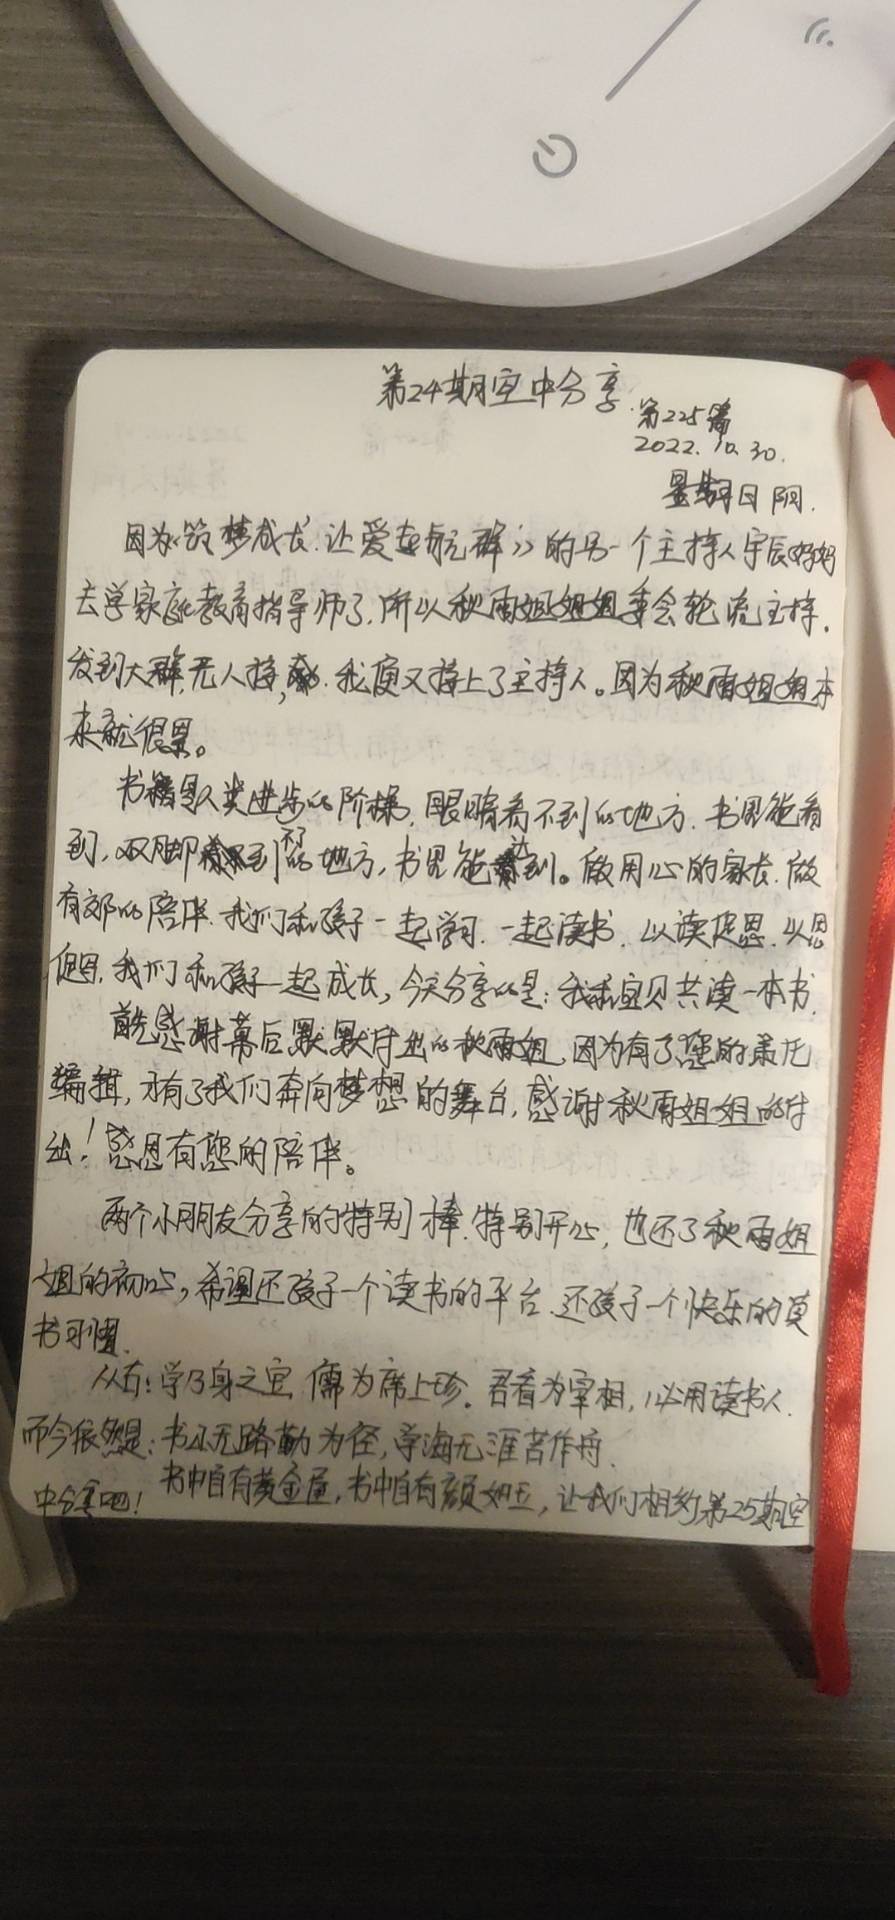 第24期空中分享
第225篇
2022.10.30.
星期日 阴.
因为《筑梦成长.让爱起航群》的另一个主持人宇辰妈妈
去学家庭教育指导师了,所以秋雨姐姐姐要会轮流主持.
发到大群,无人接,我便又接上了主持人。因为秋雨姐姐本
来就很累。
书籍是人类进步的阶梯,眼睛看不到的地方.书里能看
到,双脚到不了的地方,书里能达到。做用心的家长.做
有效的陪伴.我们和孩子一起学习.一起读书.以读促思.以思
促,我们和孩子一起成长,今天分享的是:我和宝贝共读一本书.
首先感谢幕后默默付出的秋雨姐,因为有了您的
编辑,才有了我们奔向梦想的舞台,感谢秋雨姐姐的付
出!感恩有您的陪伴。
两个小朋友分享的特别棒.特别开心,也还了秋雨姐
姐的初心,希望还孩子一个读书的平台.还孩子一个快乐的
书习惯.
从古:学乃身之宝,儒为席上珍.君看为宰相,必用读书人.
而今依然是:书山无路勤为径,学海无涯苦作舟.
书中自有黄金屋,书中自有颜如玉,让我们相约第25期空
中分享吧!